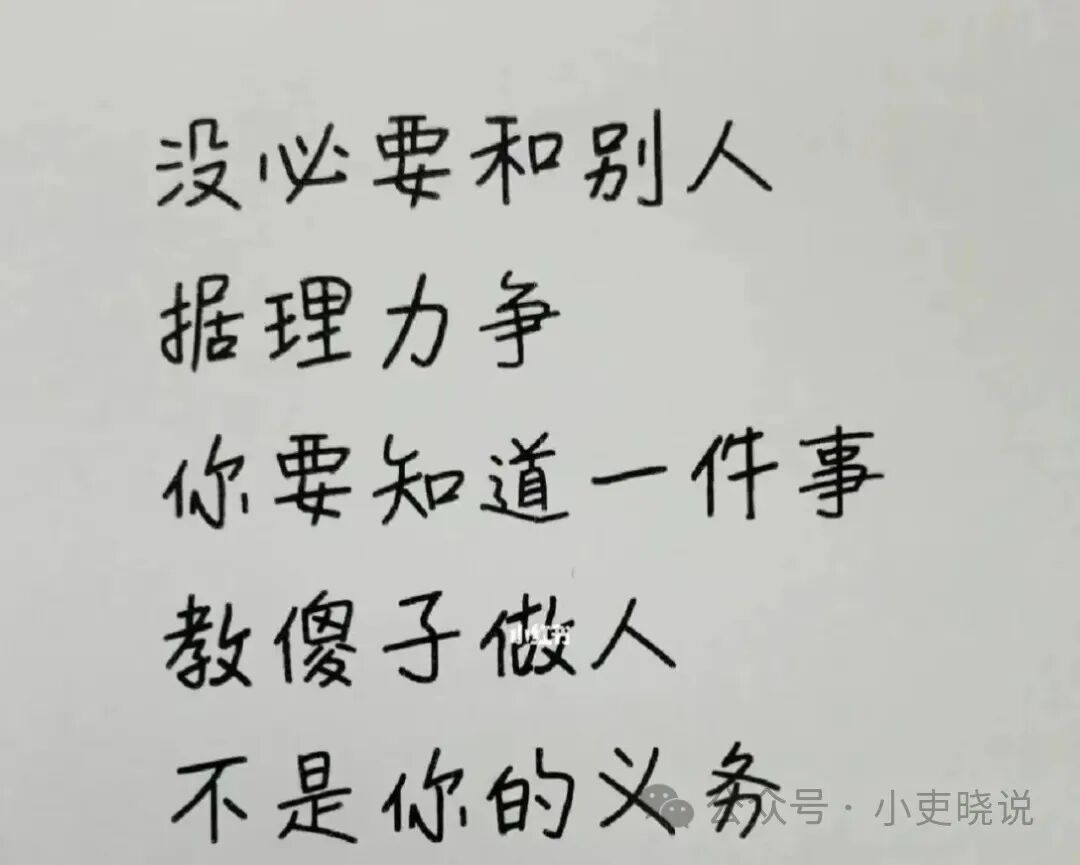 没必要和别人
据理力争
你要知道一件事
教傻子做人
小红书
不是你的义务
公众号·小吏晓说